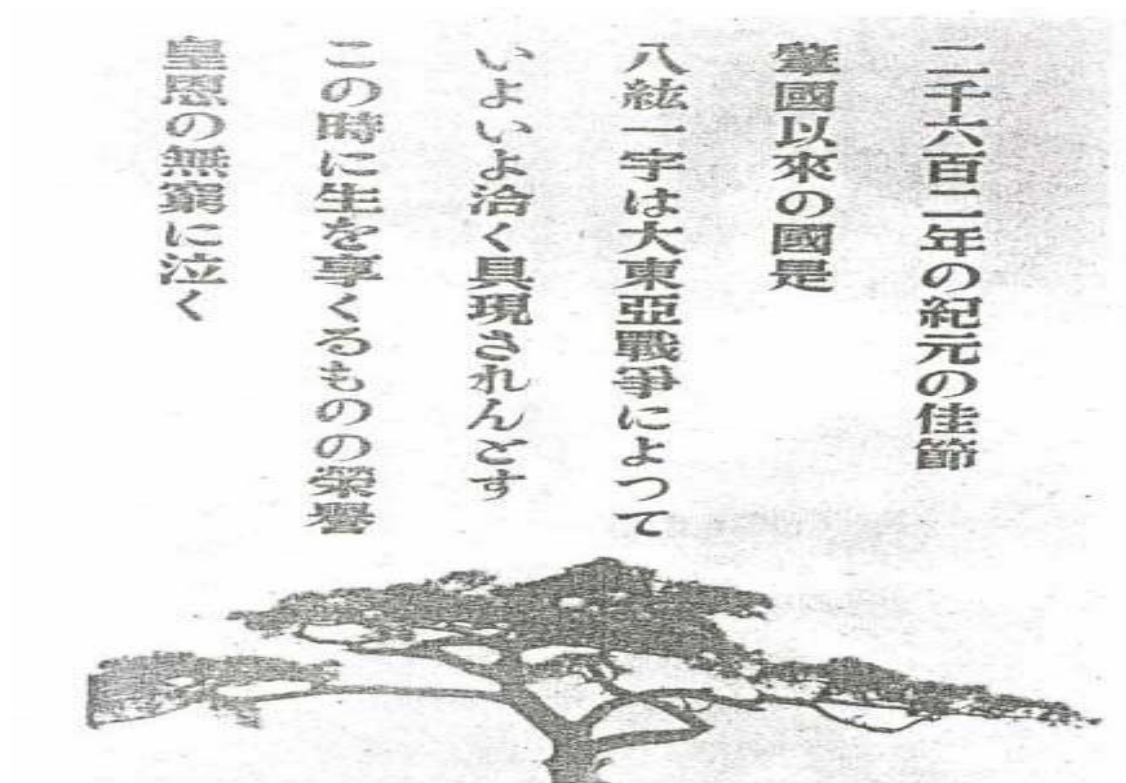 二千六百二年の紀元の佳節
肇國以來の國是
八紘一宇は大東亞戰爭によつて
いよいよ洽く具現されんとす
この時に生を享くるものの榮譽
皇恩の無窮に泣く